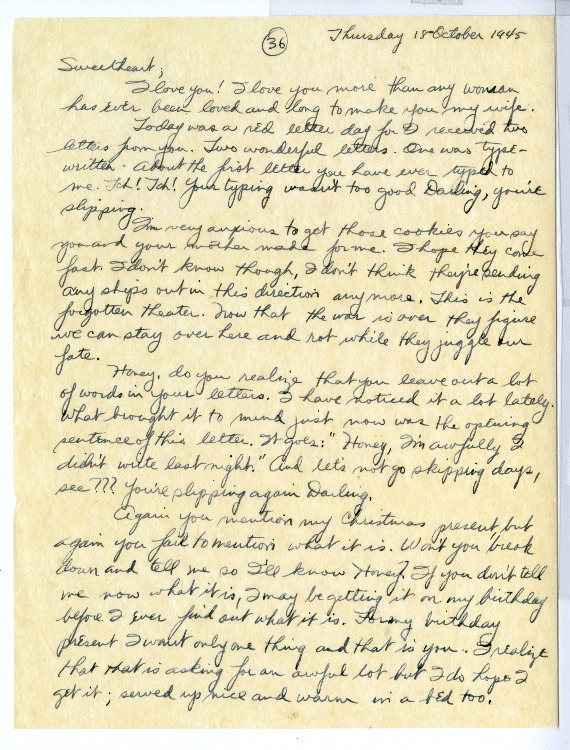 36
Thursday 18 October 1945
Sweetheart;
I love you! I love you more than any woman
has ever been loved and long to make you my wife.
Today was a red letter day for I received two
letters from you. Two wonderful letters. One was type-
written. About the first letter you have ever typed to
me. Tch! Tch! Your typing wasn't too good Darling, you're
slipping.
I'm very anxious to get those cookies you say
you and your mother made for me. I hope they come
fast. I don't know though, I don't think they're sending
any ships out in this direction any more. This is the
forgotten theater. Now that the war is over they figure
we can stay over here and rot while they juggle our
fate.
Honey, do you realize that you leave out a lot
of words in your letters. I have noticed it a lot lately.
What brought it to mind just now was the opening
sentence of this letter. It goes: "Honey, I'm awfully I
didn't write last night." And let's not go skipping days,
see??? You're slipping again Darling.
Again you mention my Christmas present but
again you fail to mention what it is. Won't you break
down and tell me so I'll know Honey? If you don't tell
me now what it is, I may be getting it on my birthday
before I ever find out what it is. For my birthday
present I want only one thing and that is you. I realize
that that is asking for an awful lot but I do hope I
get it; served up nice and warm in a bed too.